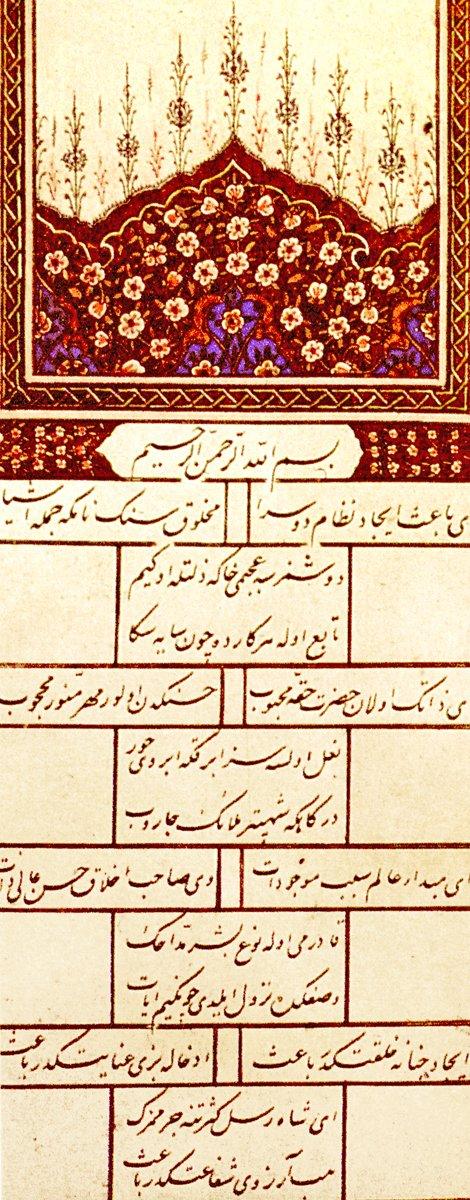 بسم الله الرحمن الرحيم
ی باعث ایجاد نظام دو سرا مخلوق سنك جمله اشیا
دوشنسه عجبمی خاكه ذلتله اوكیم
تابع اوله هر كارده چون سایه سكا
ی ذاتك اولان حضرت حقه محبوب حسنكدن اولور مهر منور محجوب
نعل اولسه سزا ابروی حور
دركاهكه شهپر ملائك جاروب
ای مبدأ عالم سبب موجودات وی صاحب اخلاق حسن عالی ذات
قادرمی اوله نوع بشر مداحك
وصفكده نزول ایلیدی چونكیم ایات
ایجاد جنانه خلقتكدر باعث ادخاله بزی عنایتكدر باعث
ای شاه رسل كثرتنه جرممزك
هب آرزوی شفاعتكدر باعث